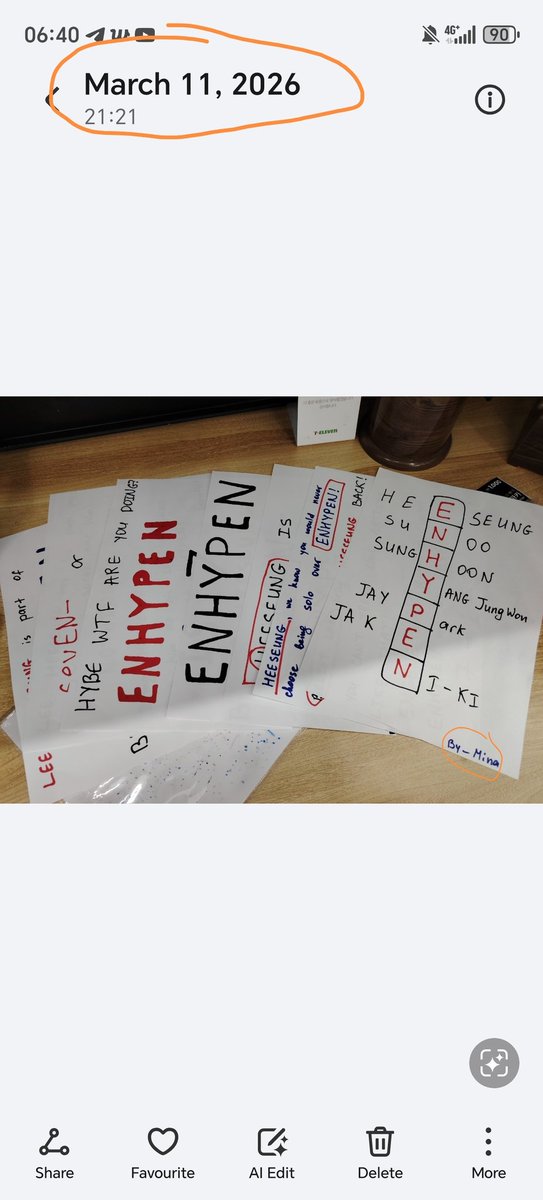 06:40
4G+
90
March 11, 2026
21:21
7-ELEVEN
1000
is part of
LEE
or
HYBE WTF ARE YOU DOING?
ENHYPEN
ENHYPEN
IS
HEESEUNG, we know you would never
choose being solo over ENHYPEN!
BACK!
HE E SEUNG
SU N OO
SUNG H OON
Y ANG JungWon
JAY P ark
JAK E
N I-KI
By-Mina
Share
Favourite
AI Edit
Delete
More